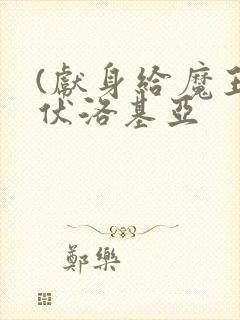 (獻身給魔王
伏洛基亞
鄭樂